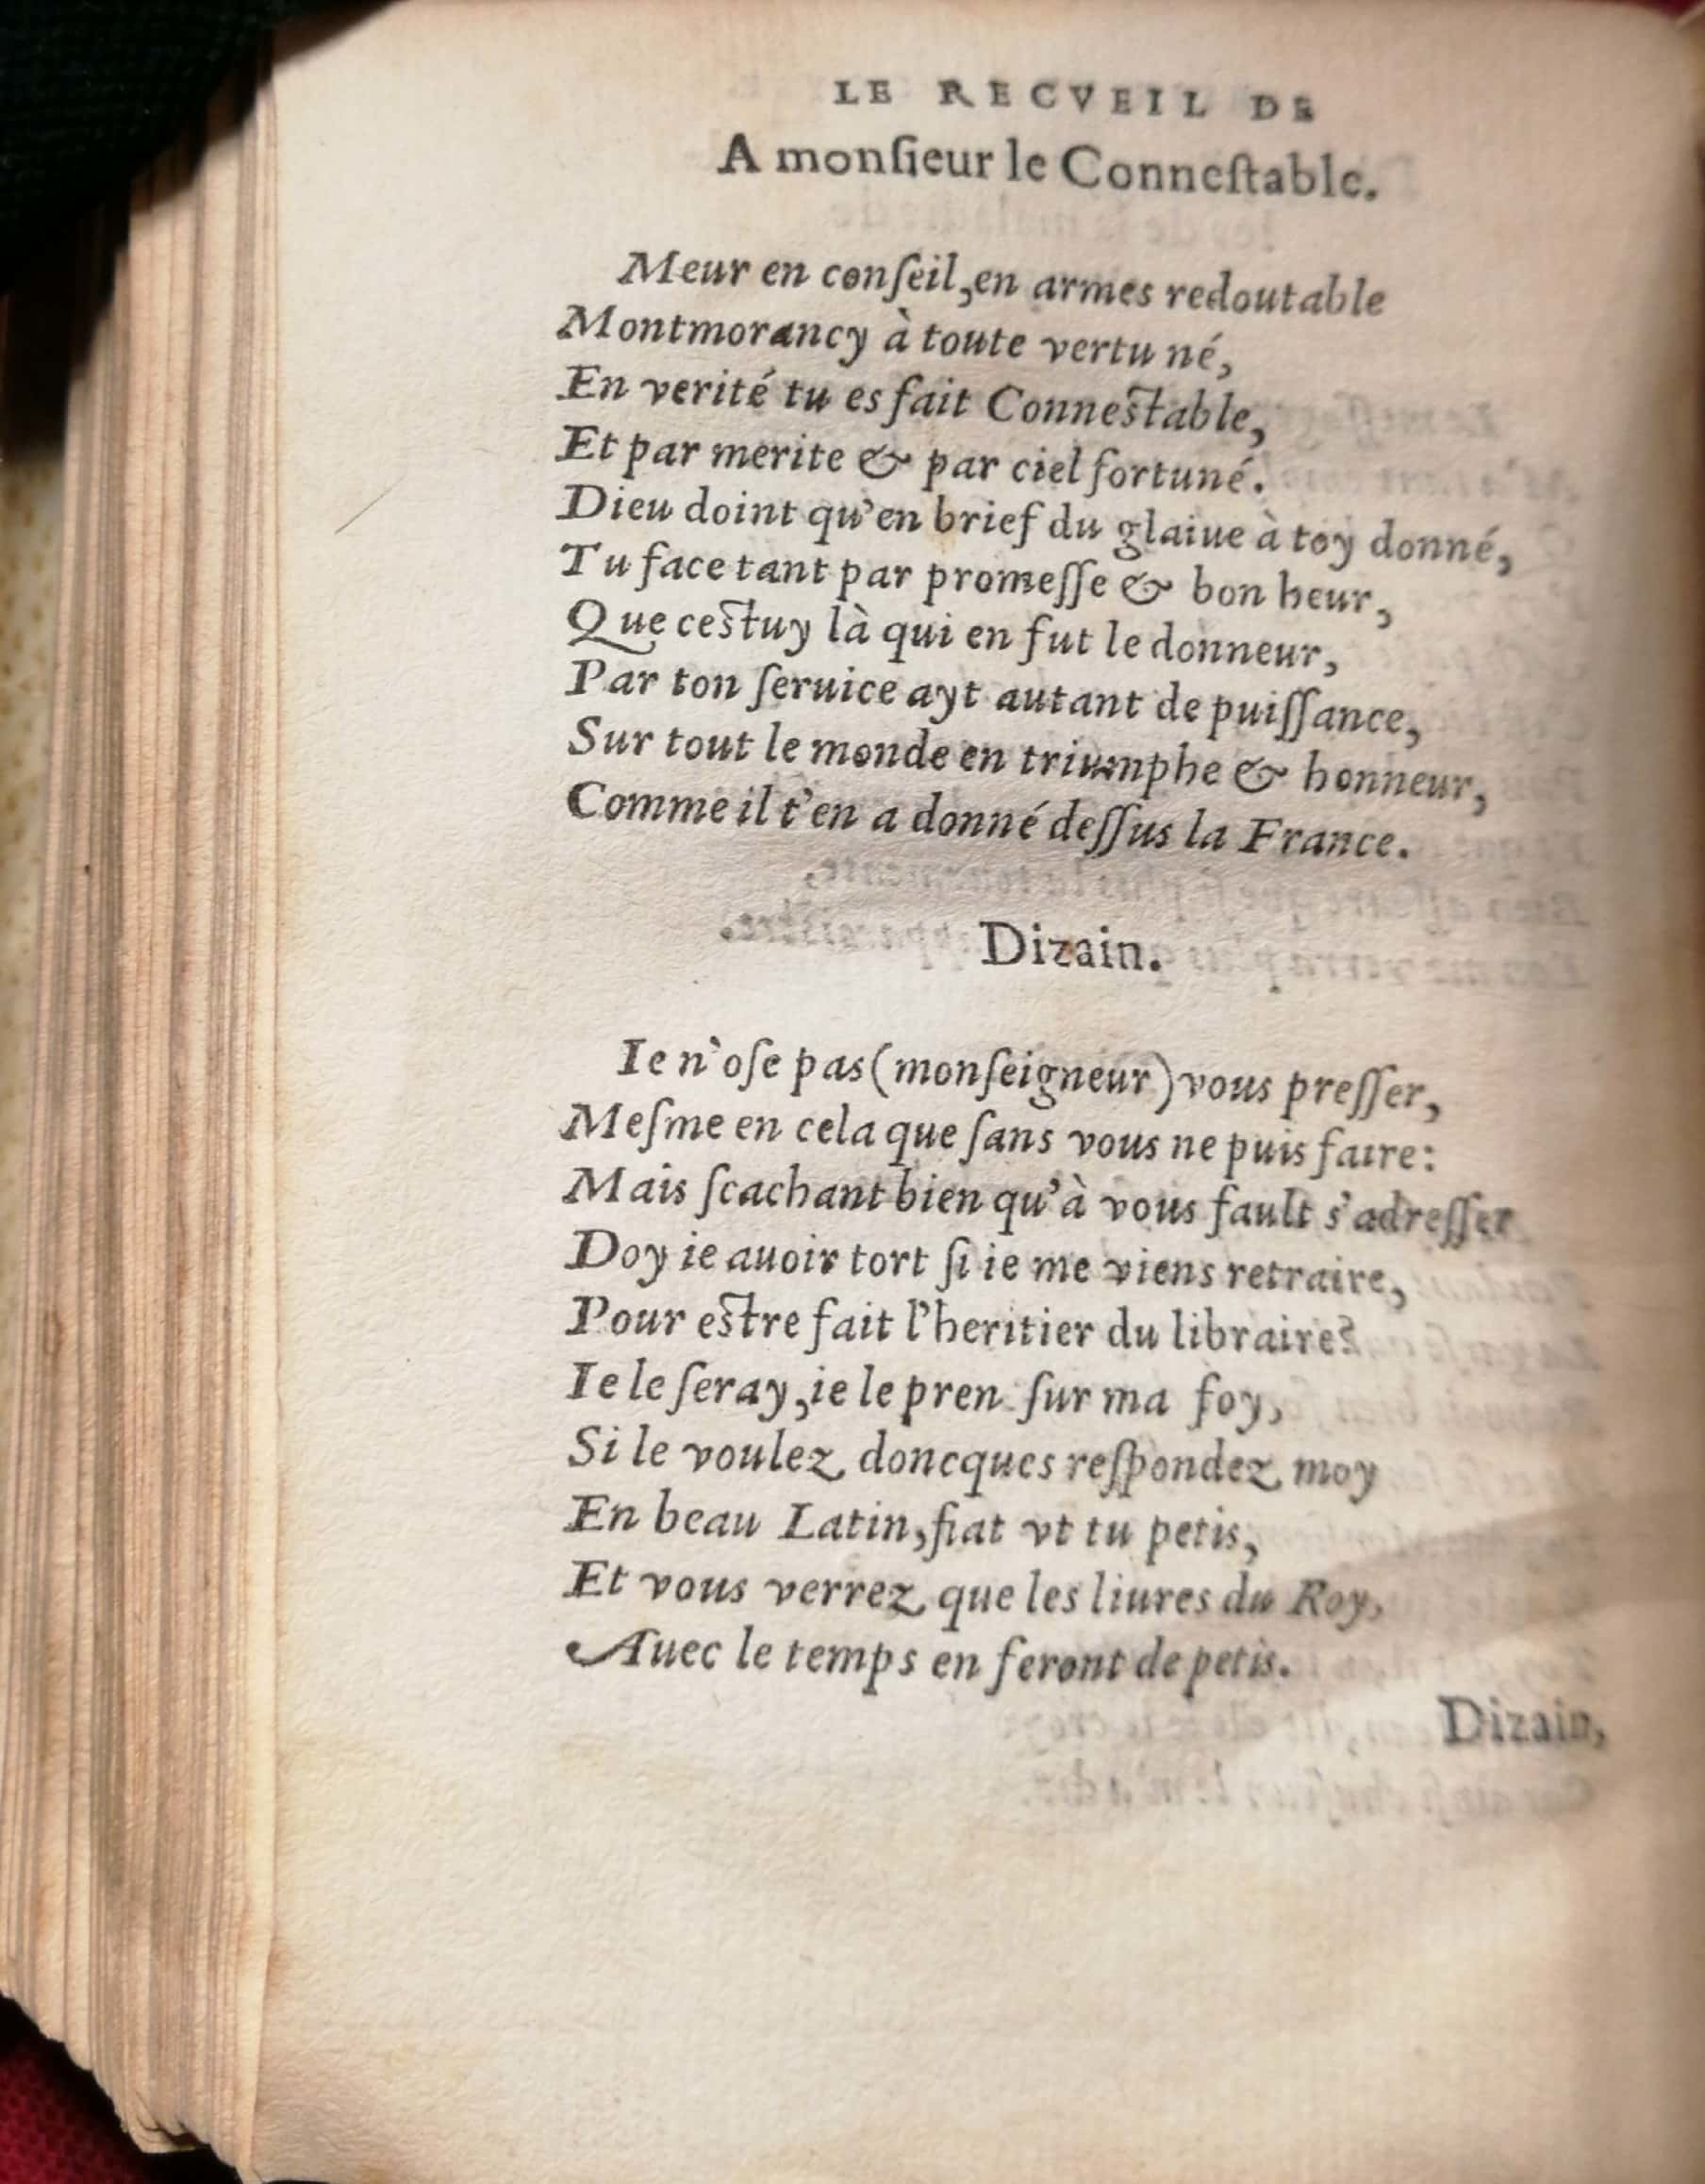 LE RECVEIL DE
A monſieur le Conneſtable.
Meur en conſeil, en armes redoutable
Montmorancy à toute vertu né,
En verité tu es fait Conneſtable,
Et par merite & par ciel fortuné.
Dieu doint qu'en brief du glaiue à toy donné,
Tu face tant par promeſſe & bon heur,
Que ceſtuy là qui en fut le donneur,
Par ton ſeruice ayt autant de puiſſance,
Sur tout le monde en triumphe & honneur,
Comme il t'en a donné deſſus la France.
Dizain.
Ie n'oſe pas (monſeigneur) vous preſſer,
Meſme en cela que ſans vous ne puis faire:
Mais ſcachant bien qu'à vous fault s'adreſſer
Doy ie auoir tort ſi ie me viens retraire,
Pour eſtre fait l'heritier du libraire?
Ie le ſeray, ie le pren ſur ma foy,
Si le voulez doncques reſpondez moy
En beau Latin, fiat vt tu petis,
Et vous verrez que les liures du Roy,
Auec le temps en feront de petis.
Dizain,